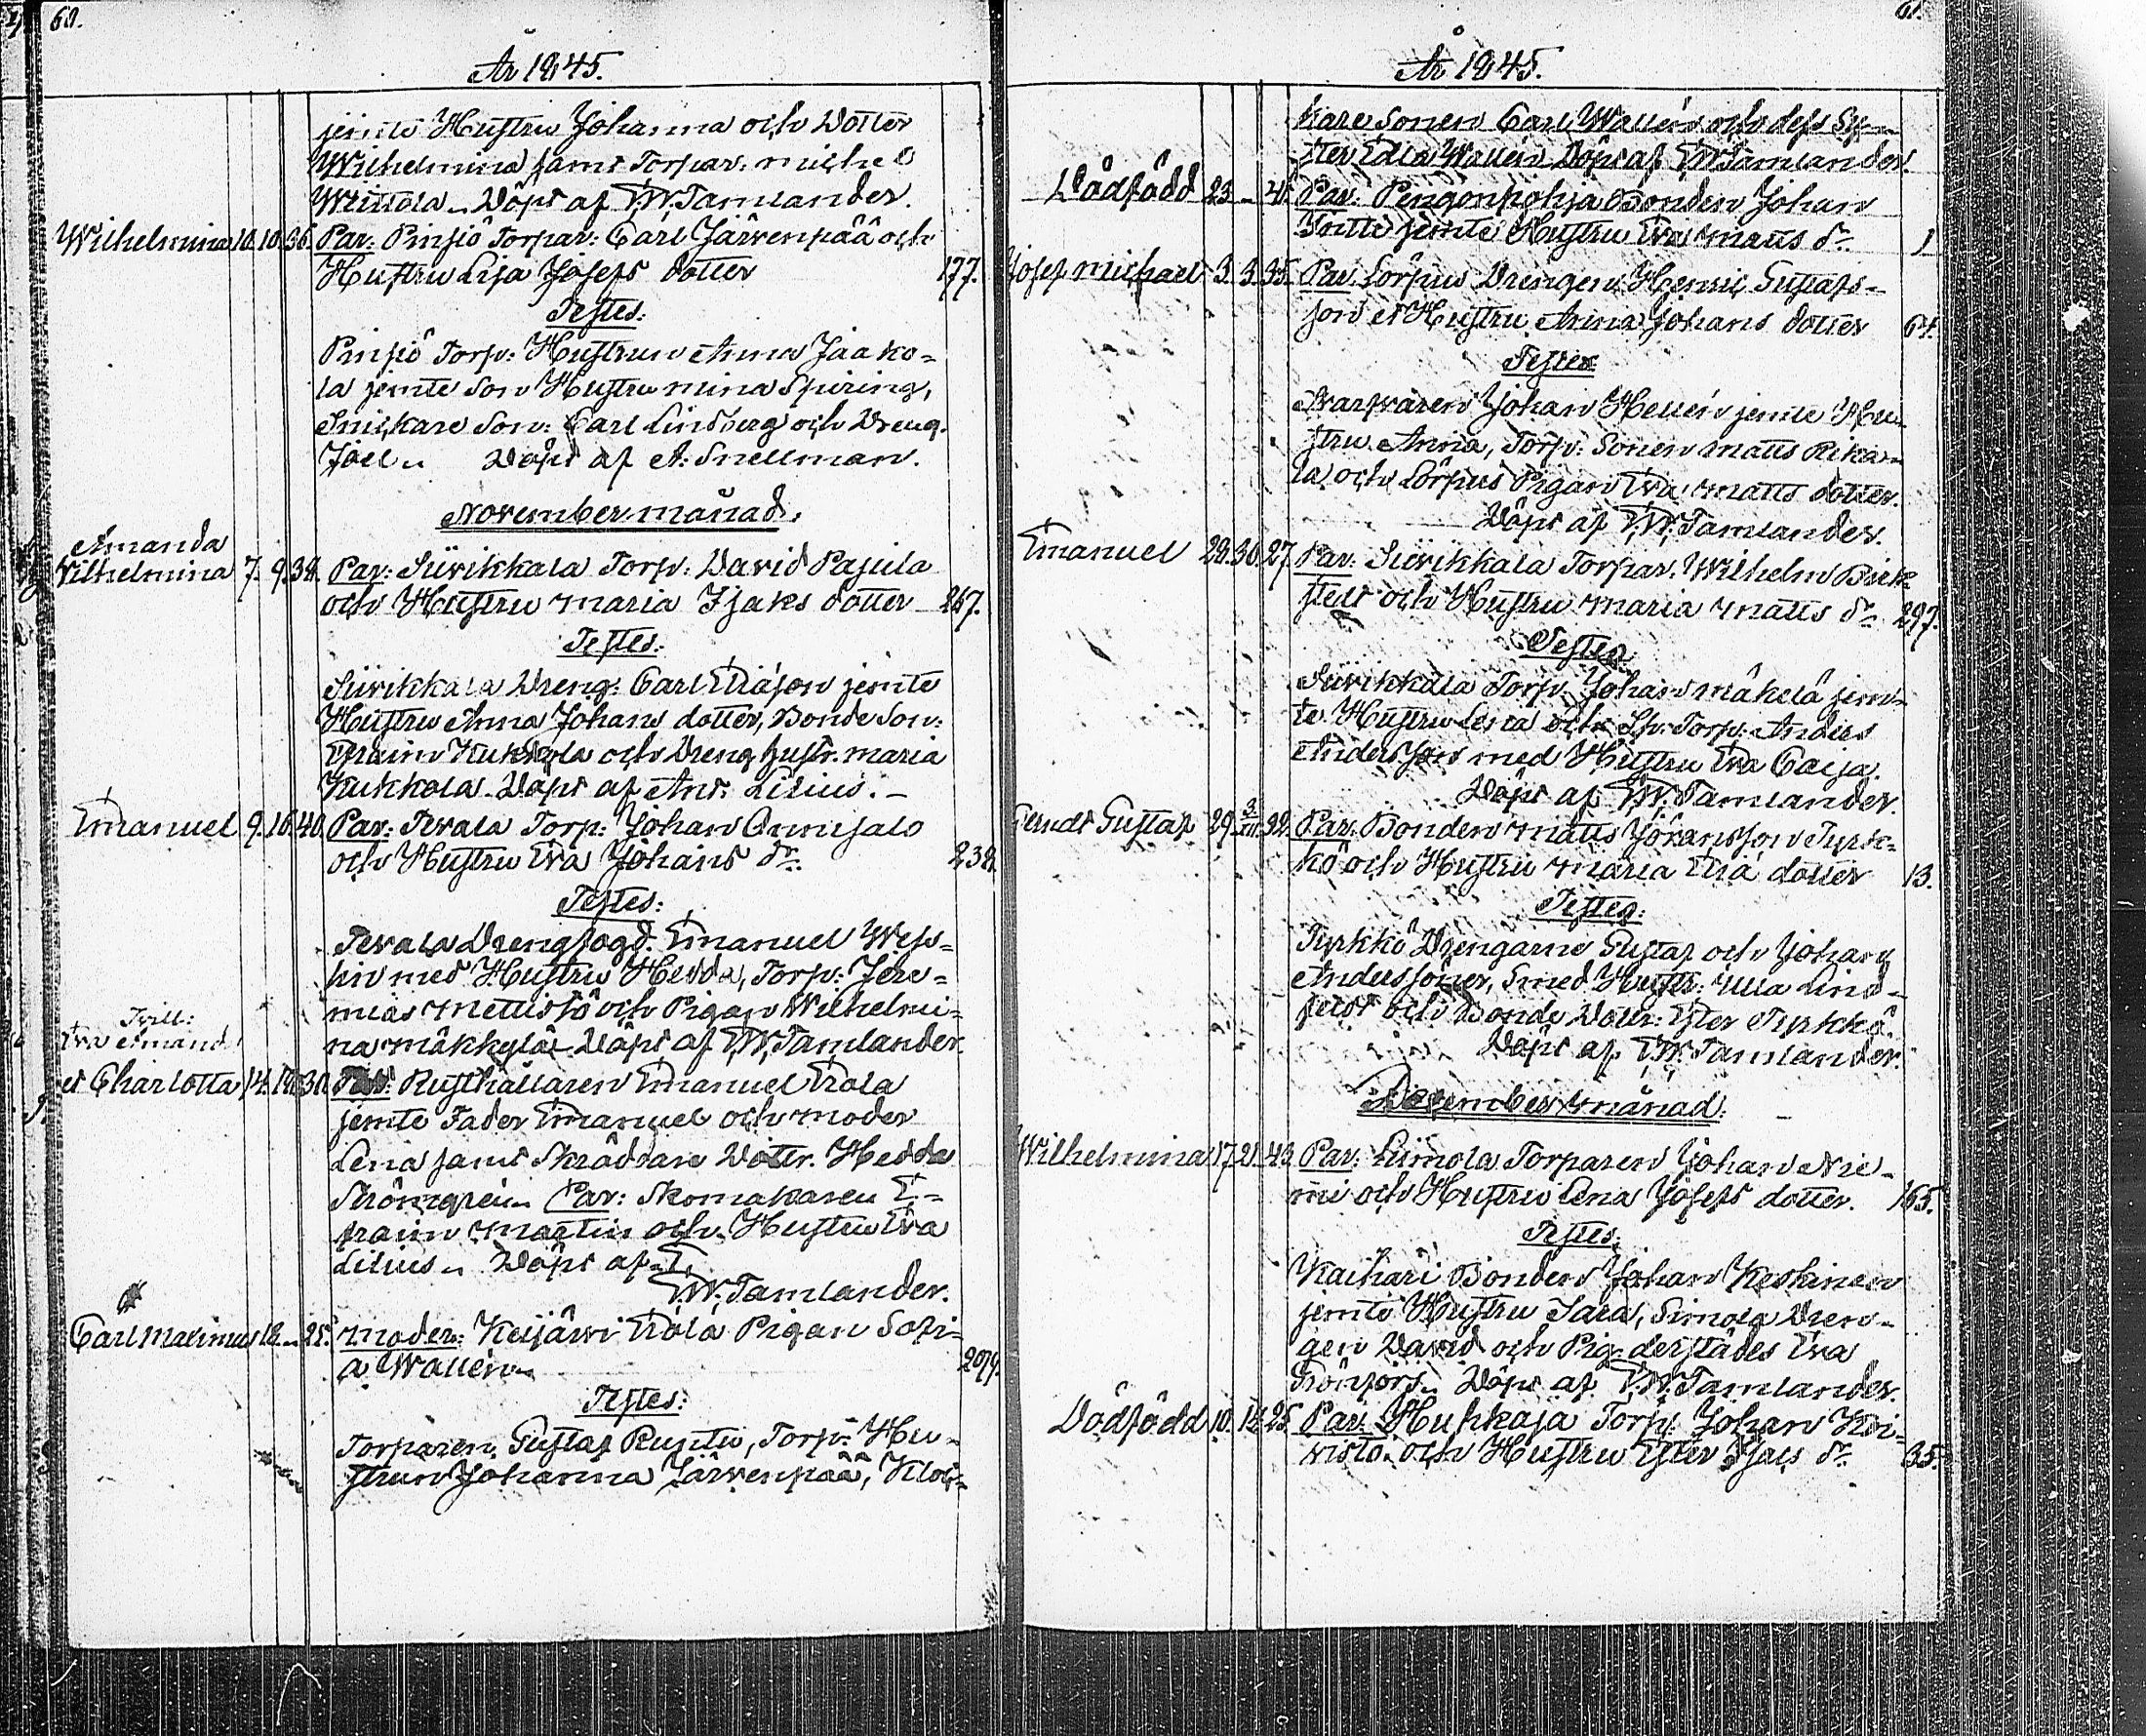 60.
År 1845.
jemte Hustru Johanna och Dotter
Wilhelmina samt Torpar: Michel
Döpt af E.W. Tamlander.
Wilhelmina 10. 10. 36. Par: Pinsiö Torpar: Carl Järvenpää och
Hustru Lisa Josefs dotter 177.
Testes:
Pinsiö Torp: Hustrun Anna Jaako-
la jemte Son Hustru Mina Spiring,
Snickare Son: Carl Lindberg och Dreng.
Joel. Döpt af A. Snellman.
November månad.
Amanda
Vilhelmina 7. 9. 38. Par: Siirikkala Torp: David Pajula
och Hustru Maria Isaks dotter 267.
Testes:
Siirikkala Dreng: Carl Eliasson jemte
Hustru Anna Johans dotter, Bonde Son:
Efraim Kukkola och Dreng hustr. Maria
Kukkola. Döpt af Ant: Lilius.
Emanuel 9. 16. 40. Par: Tevala Torp: Johan Onnisalo
och Hustru Eva Johans dr. 238.
Testes:
Tevala Drengfogd. Emanuel Wess-
kin med Hustru Hedda, Torp: Jere-
mias Mettistö och Pigan Wilhelmi-
na Mäkkylä. Döpt af E.W. Tamlander.
Tvill:
Eva Amanda
et Charlotta 14. 18. 30. Test: Rusthållaren Emanuel Erola
jemte Fader Emanuel och Moder
Lena samt Skräddare Dottr. Hedda
Strömgren. Par: Skomakaren E-
fraim Martin och Hustru Eva
Lilius. Döpt af
E.W. Tamlander.
Carl Maximus 18. 25. Moder: Keijärvi Erola Pigan Sofi-
a Wallén. 209.
Testes:
Torparen Gustaf Runtu, Torp: Hu-
strun Johanna Järvenpää, Kloc-
61.
År 1845.
kare Sonen Carl Wallén och dess Sy-
ster Edla Wallén. Döpt af E.W. Tamlander.
Dödfödd 23. Par: Pengonpohja Bonden Johan
Tontti jemte Hustru Eva Matts dr. 1
Josef Michael 3. 3. 35. Par. Sorpus Drengen Henric Gustafs-
son et Hustru Anna Johans dotter 61.
Testes
Svarfvaren Johan Hellén jemte Hu-
stru Anna, Torp: Sonen Matts Rika-
la och Sorpus Pigan Eva Matts dotter.
Döpt af E.W. Tamlander.
Emanuel 28. 30. 27. Par: Siirikkala Torpar. Wilhelm Bick-
stedt och Hustru Maria Matts dr. 297.
Testes
Siirikkala Torp. Johan Mäkelä jem-
te Hustru Lena och Torp: Anders
Andersson med Hustru Eva Caisa.
Döpt af E.W. Tamlander.
Berndt Gustaf 29. 3/XII. 32. Par. Bonden Matts Jöransson Tyrk-
kö och Hustru Maria Elia dotter 13.
Testes:
Tyrkkö Drengarne Gustaf och Johan
Anderssöner, Smed Hustr: Ulla Lind-
feldt och Bonde Dottr: Ester Tyrkkö.
Döpt af E.W. Tamlander.
December månad.
Wilhelmina 17. 21. 43. Par: Siimola Torparen Johan Nie-
mi och Hustru Lena Josefs dotter. 165.
Testes:
Kaihari Bonden Johan Keskinen
jemte Hustru Sara, Simola Dren-
gen David och Pig. derstädes Eva
Döpt af E.W. Tamlander.
Dödfödd 10. 14. 25. Par. Huhkaja Torp: Johan Koi-
visto och Hustru Ester Isacs dr. 35.